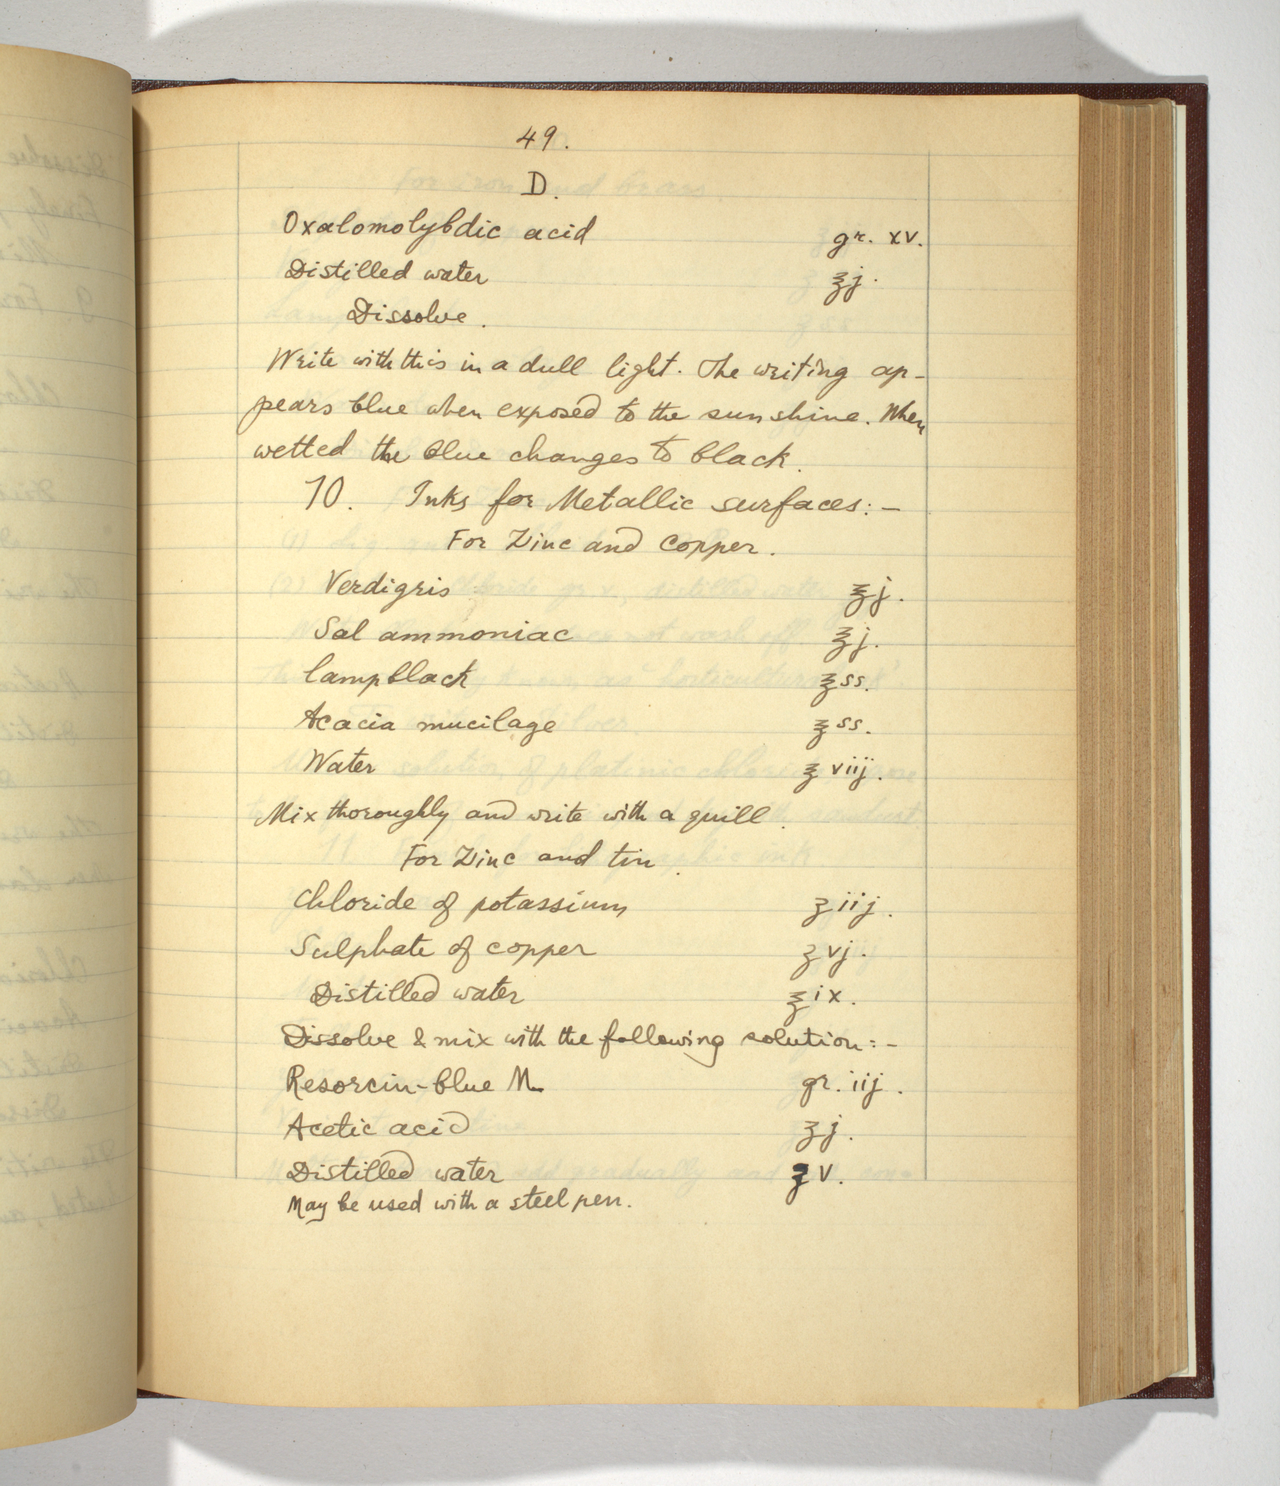 49.
D.
Oxalomolybdic acid gr. xv.
Distilled water ℥j.
Dissolve.
Write with this in a dull light. The writing ap-
pears blue when exposed to the sunshine. When
wetted the blue changes to black.
10. Inks for Metallic surfaces:-
For Zinc and Copper.
Verdigris ℥j.
Sal ammoniac ℥j.
Lampblack ℥ss.
Acacia mucilage ℥ss.
Water ℥viij.
Mix thoroughly and write with a quill.
For Zinc and tin.
Chloride of potassium ʒiij.
Sulphate of copper ʒvj.
Distilled water ℥ix.
Dissolve & mix with the following solution:-
Resorcin-blue M. gr. iij.
Acetic acid ʒj.
Distilled water ℥v.
May be used with a steel pen.